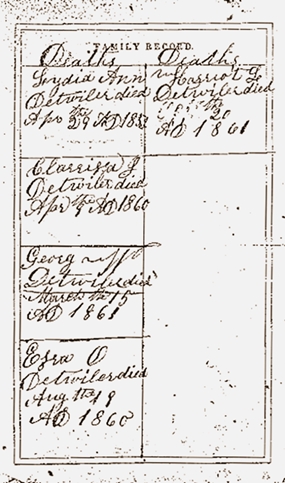 FAMILY RECORD.
Deaths
Lydia Ann
Detwiler died
Apr the 29 AD 185
Clarrissa J
Detwiler died
Apr the AD 1860
Georg
Detwiler died
March the 15
AD 1861
Ezra O
Detwiler died
Aug the 19
AD 1860
Deaths
Harriot
Detwiler died
the 20
AD 1861